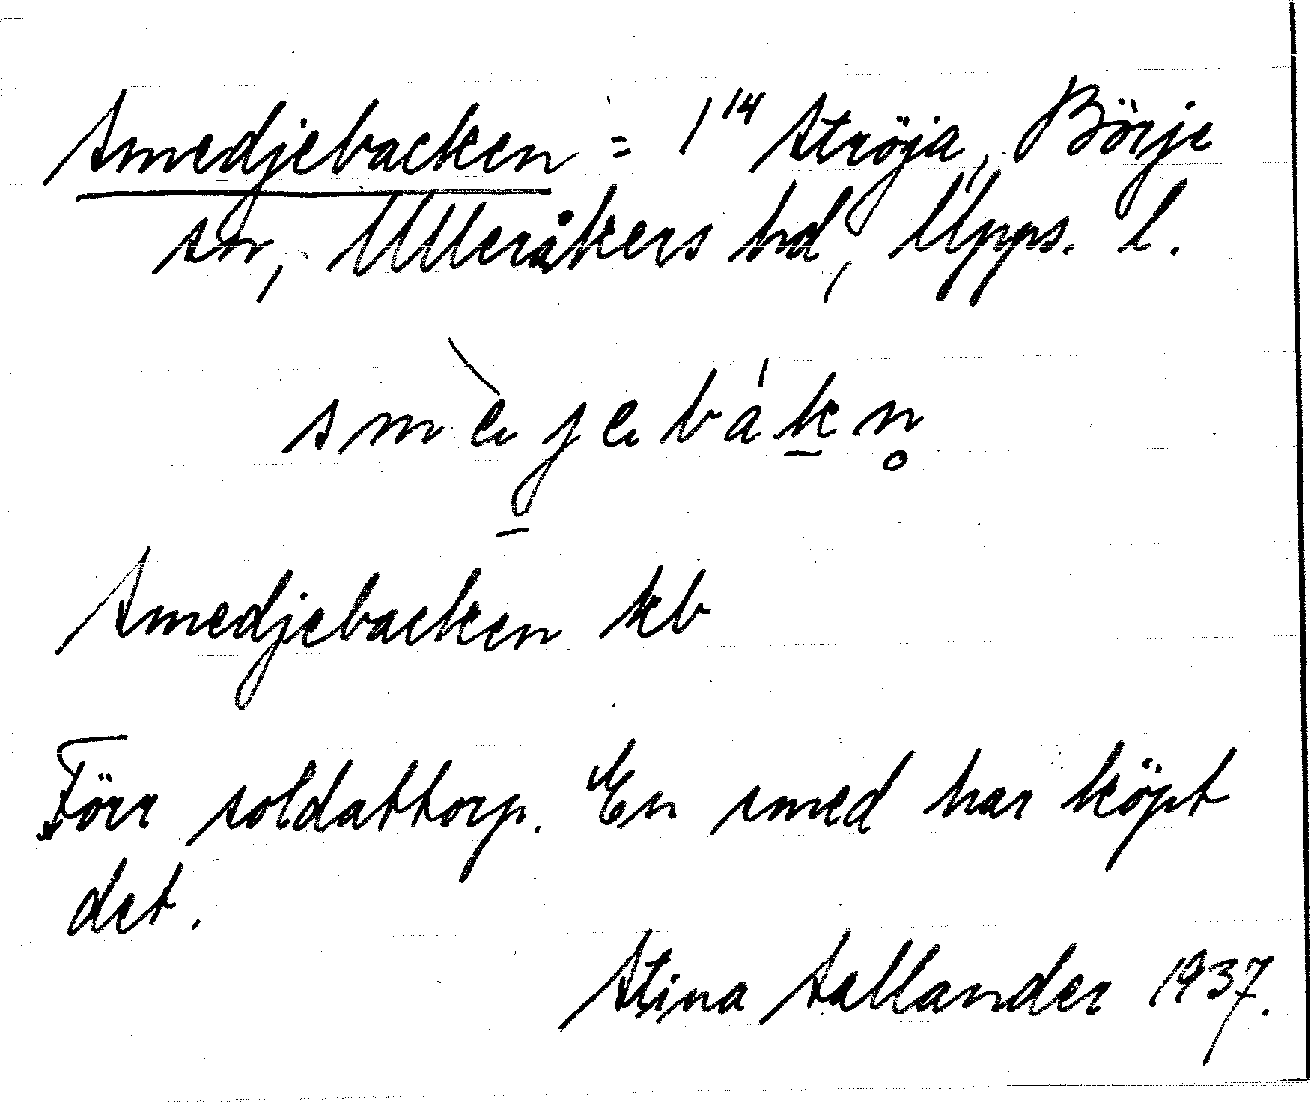 Smedjebacken = 1¹⁴ Ströja, Börje
sn, Ulleråkers hd, Upps. l.
smèjebákn̥
Smedjebacken kb
Förr soldattorp. En smed har köpt
det.
Stina Sallander 1937.